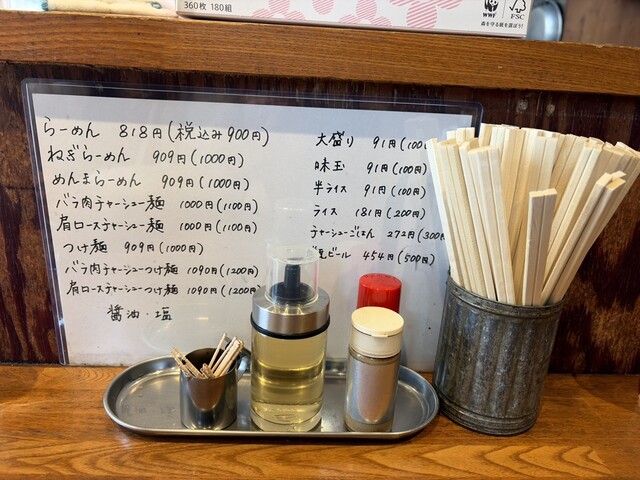 360枚 180組
WWF
FSC
らーめん 818円(税込み900円)
ねぎらーめん 909円(1000円)
めんまらーめん 909円(1000円)
バラ肉チャーシュー麺 1000円(1100円)
肩ロースチャーシュー麺 1000円(1100円)
つけ麺 909円(1000円)
バラ肉チャーシューつけ麺 1090円(1200円)
肩ロースチャーシューつけ麺 1090円(1200円)
醤油・塩
大盛り 91円(100
味玉 91円(100円)
半ライス 91円(100円)
ライス 181円(200円)
チャーシューごはん 272円(300円
ビール 454円(500円)